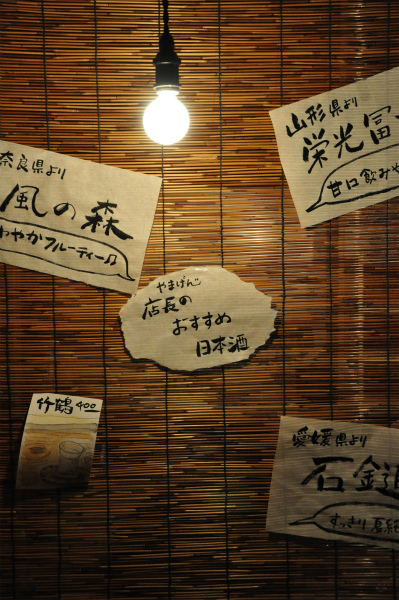 山形県より
栄光冨
甘口飲みや
奈良県より
風の森
わやかフルーティー♫
やまげんじ
店長の
おすすめ
日本酒
竹鶴 400
愛媛県より
石鎚
すっきり